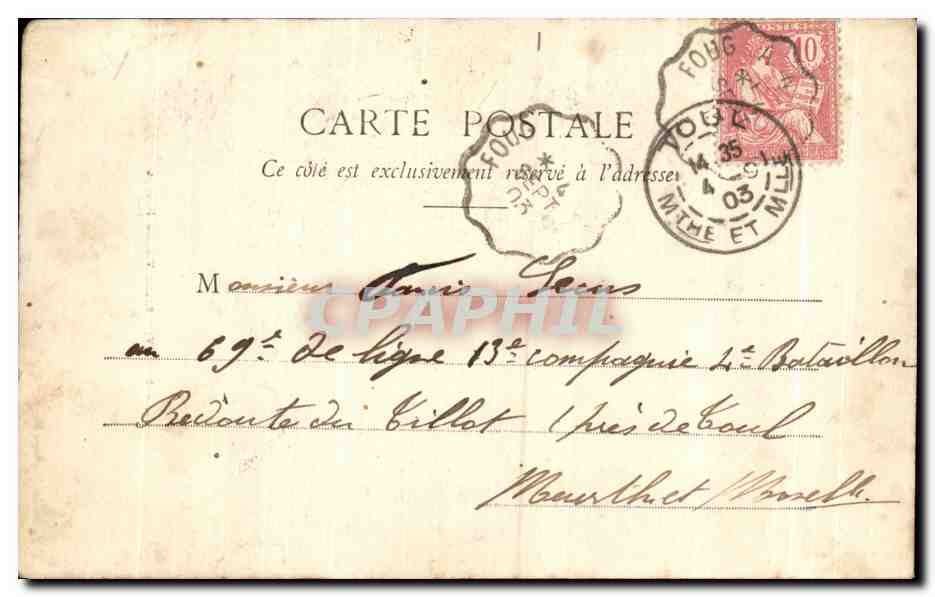 POSTES
10
FOUG
TOUL
14 35
4 -9 03
MTHE ET MLLE
CARTE POSTALE
FOUG
4
SEPT
03
Ce côté est exclusivement réservé à l'adresse
Monsieur
CPAPHIL
au 69e de ligne 13e compagnie 4e Bataillon
Redoute du Tillot près de Toul
Meurth et Moselle